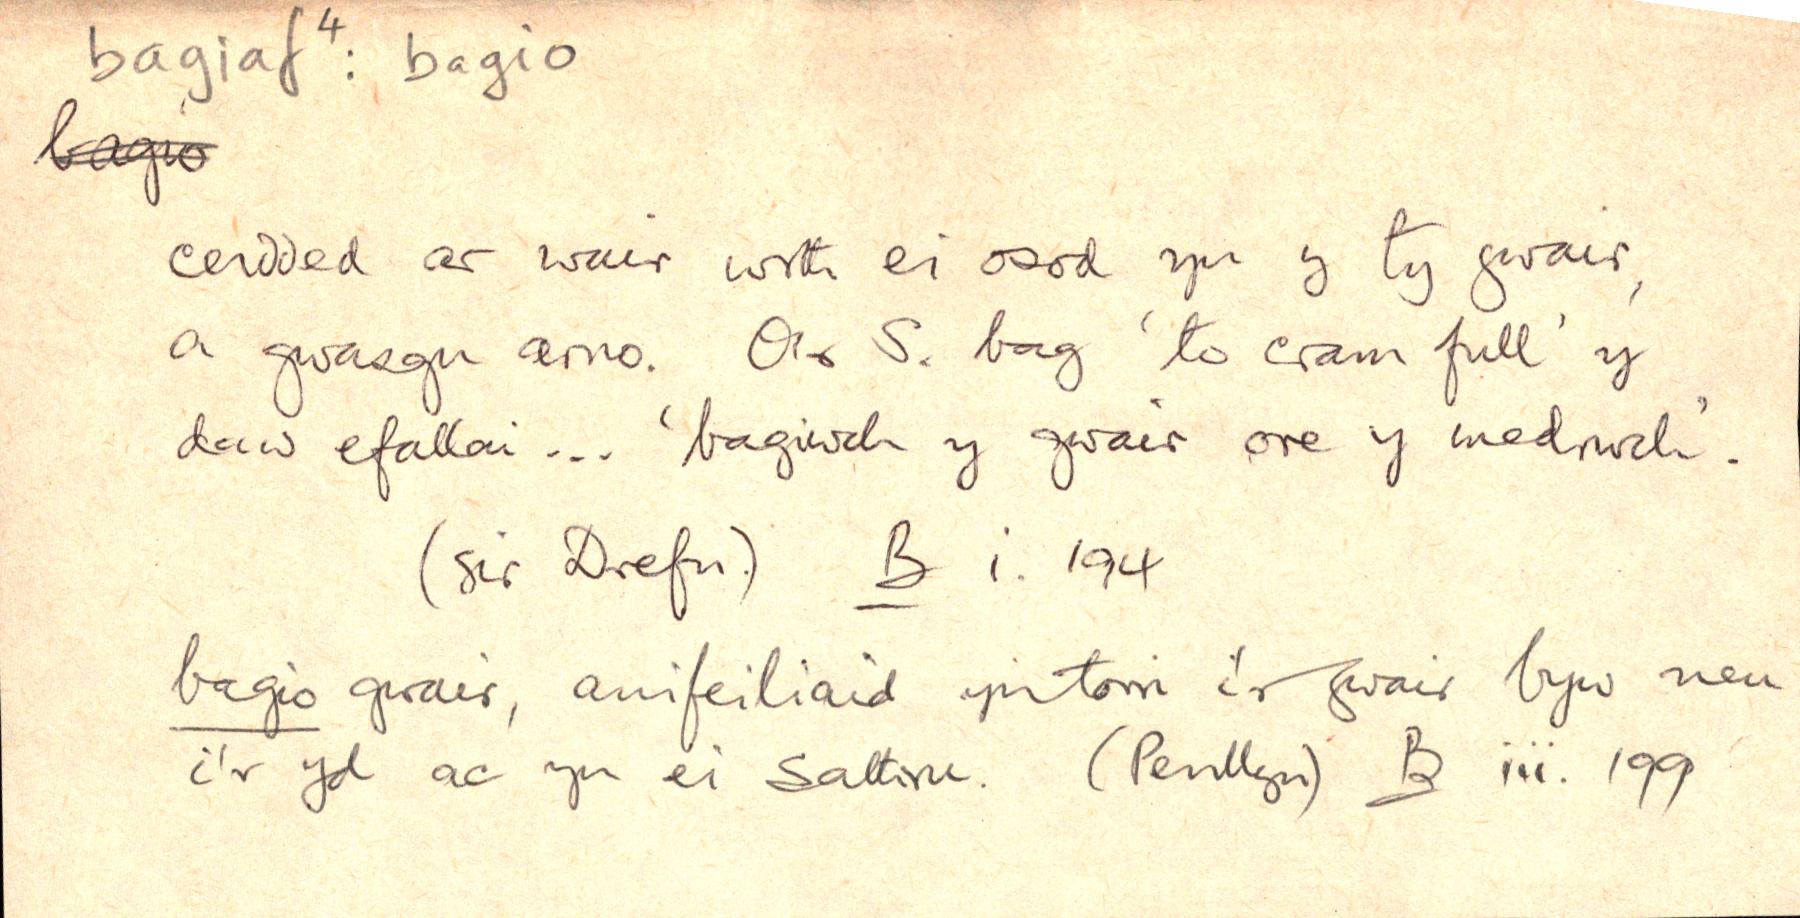 bagiaf⁴: bagio
bagio
cerdded ar wair wrth ei osod yn y tŷ gwair,
a gwasgu arno. O'r S. bag 'to cram full' y
daw efallai... 'bagiwch y gwair ore y medrwch'.
(sir Drefn.) B i. 194
bagio gwair, anifeiliaid yn torri i'r gwair byw neu
i'r ŷd ac yn ei saltru. (Penllyn) B iii. 199